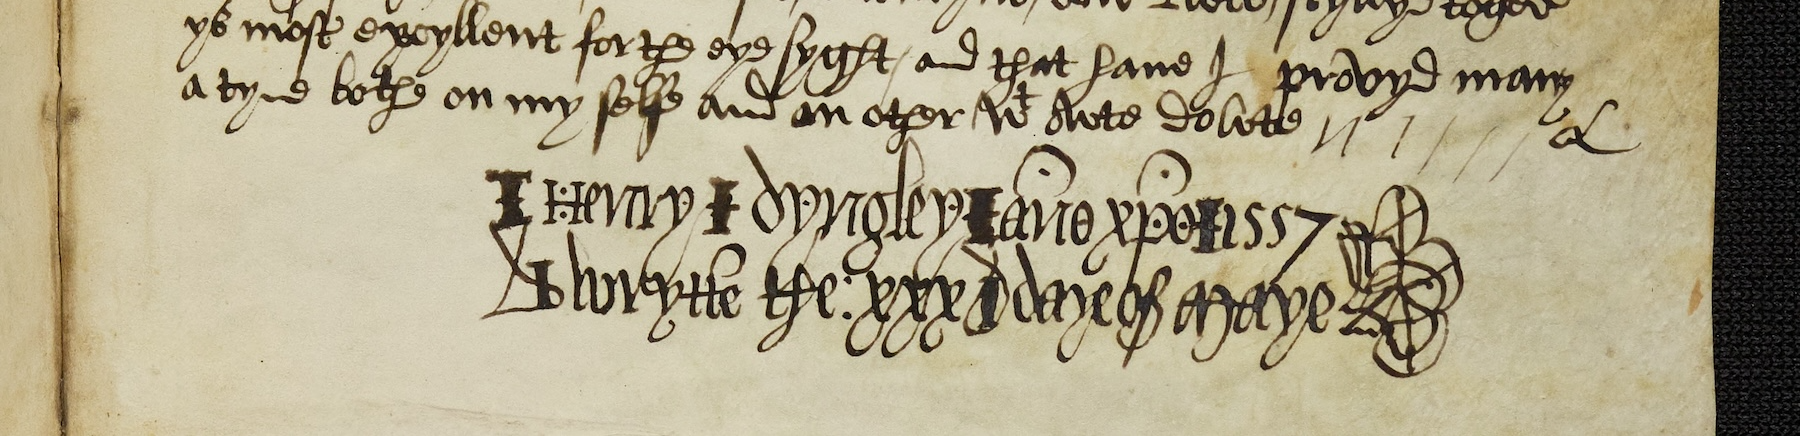 styllyd togeder
ys most excyllent for the eye syght / and that haue I provyd many
a tyme bothe on my selfe and an other wt owte dowte &
Henry dyngley ano xpo 1557
wrytte the : xxx daye of Maye